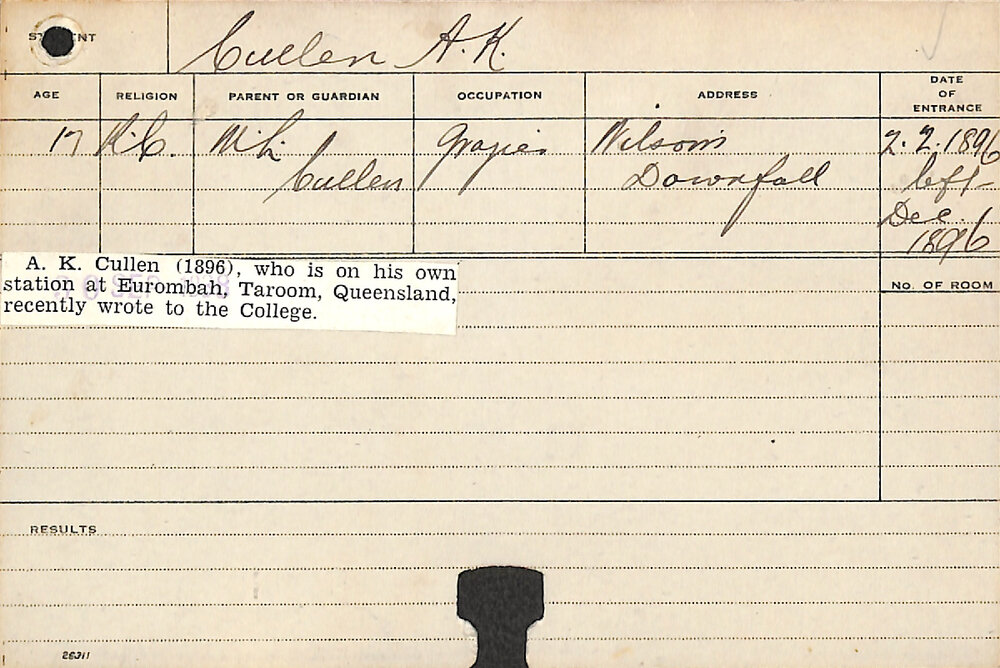 STUDENT Cullen A. K.
AGE RELIGION PARENT OR GUARDIAN OCCUPATION ADDRESS DATE OF ENTRANCE
17 R.C. Grazier Wilson's 2.2.1896
Cullen Downfall left
Dec.
1896
A. K. Cullen (1896), who is on his own
station at Eurombah, Taroom, Queensland,
recently wrote to the College.
NO. OF ROOM
RESULTS
26311